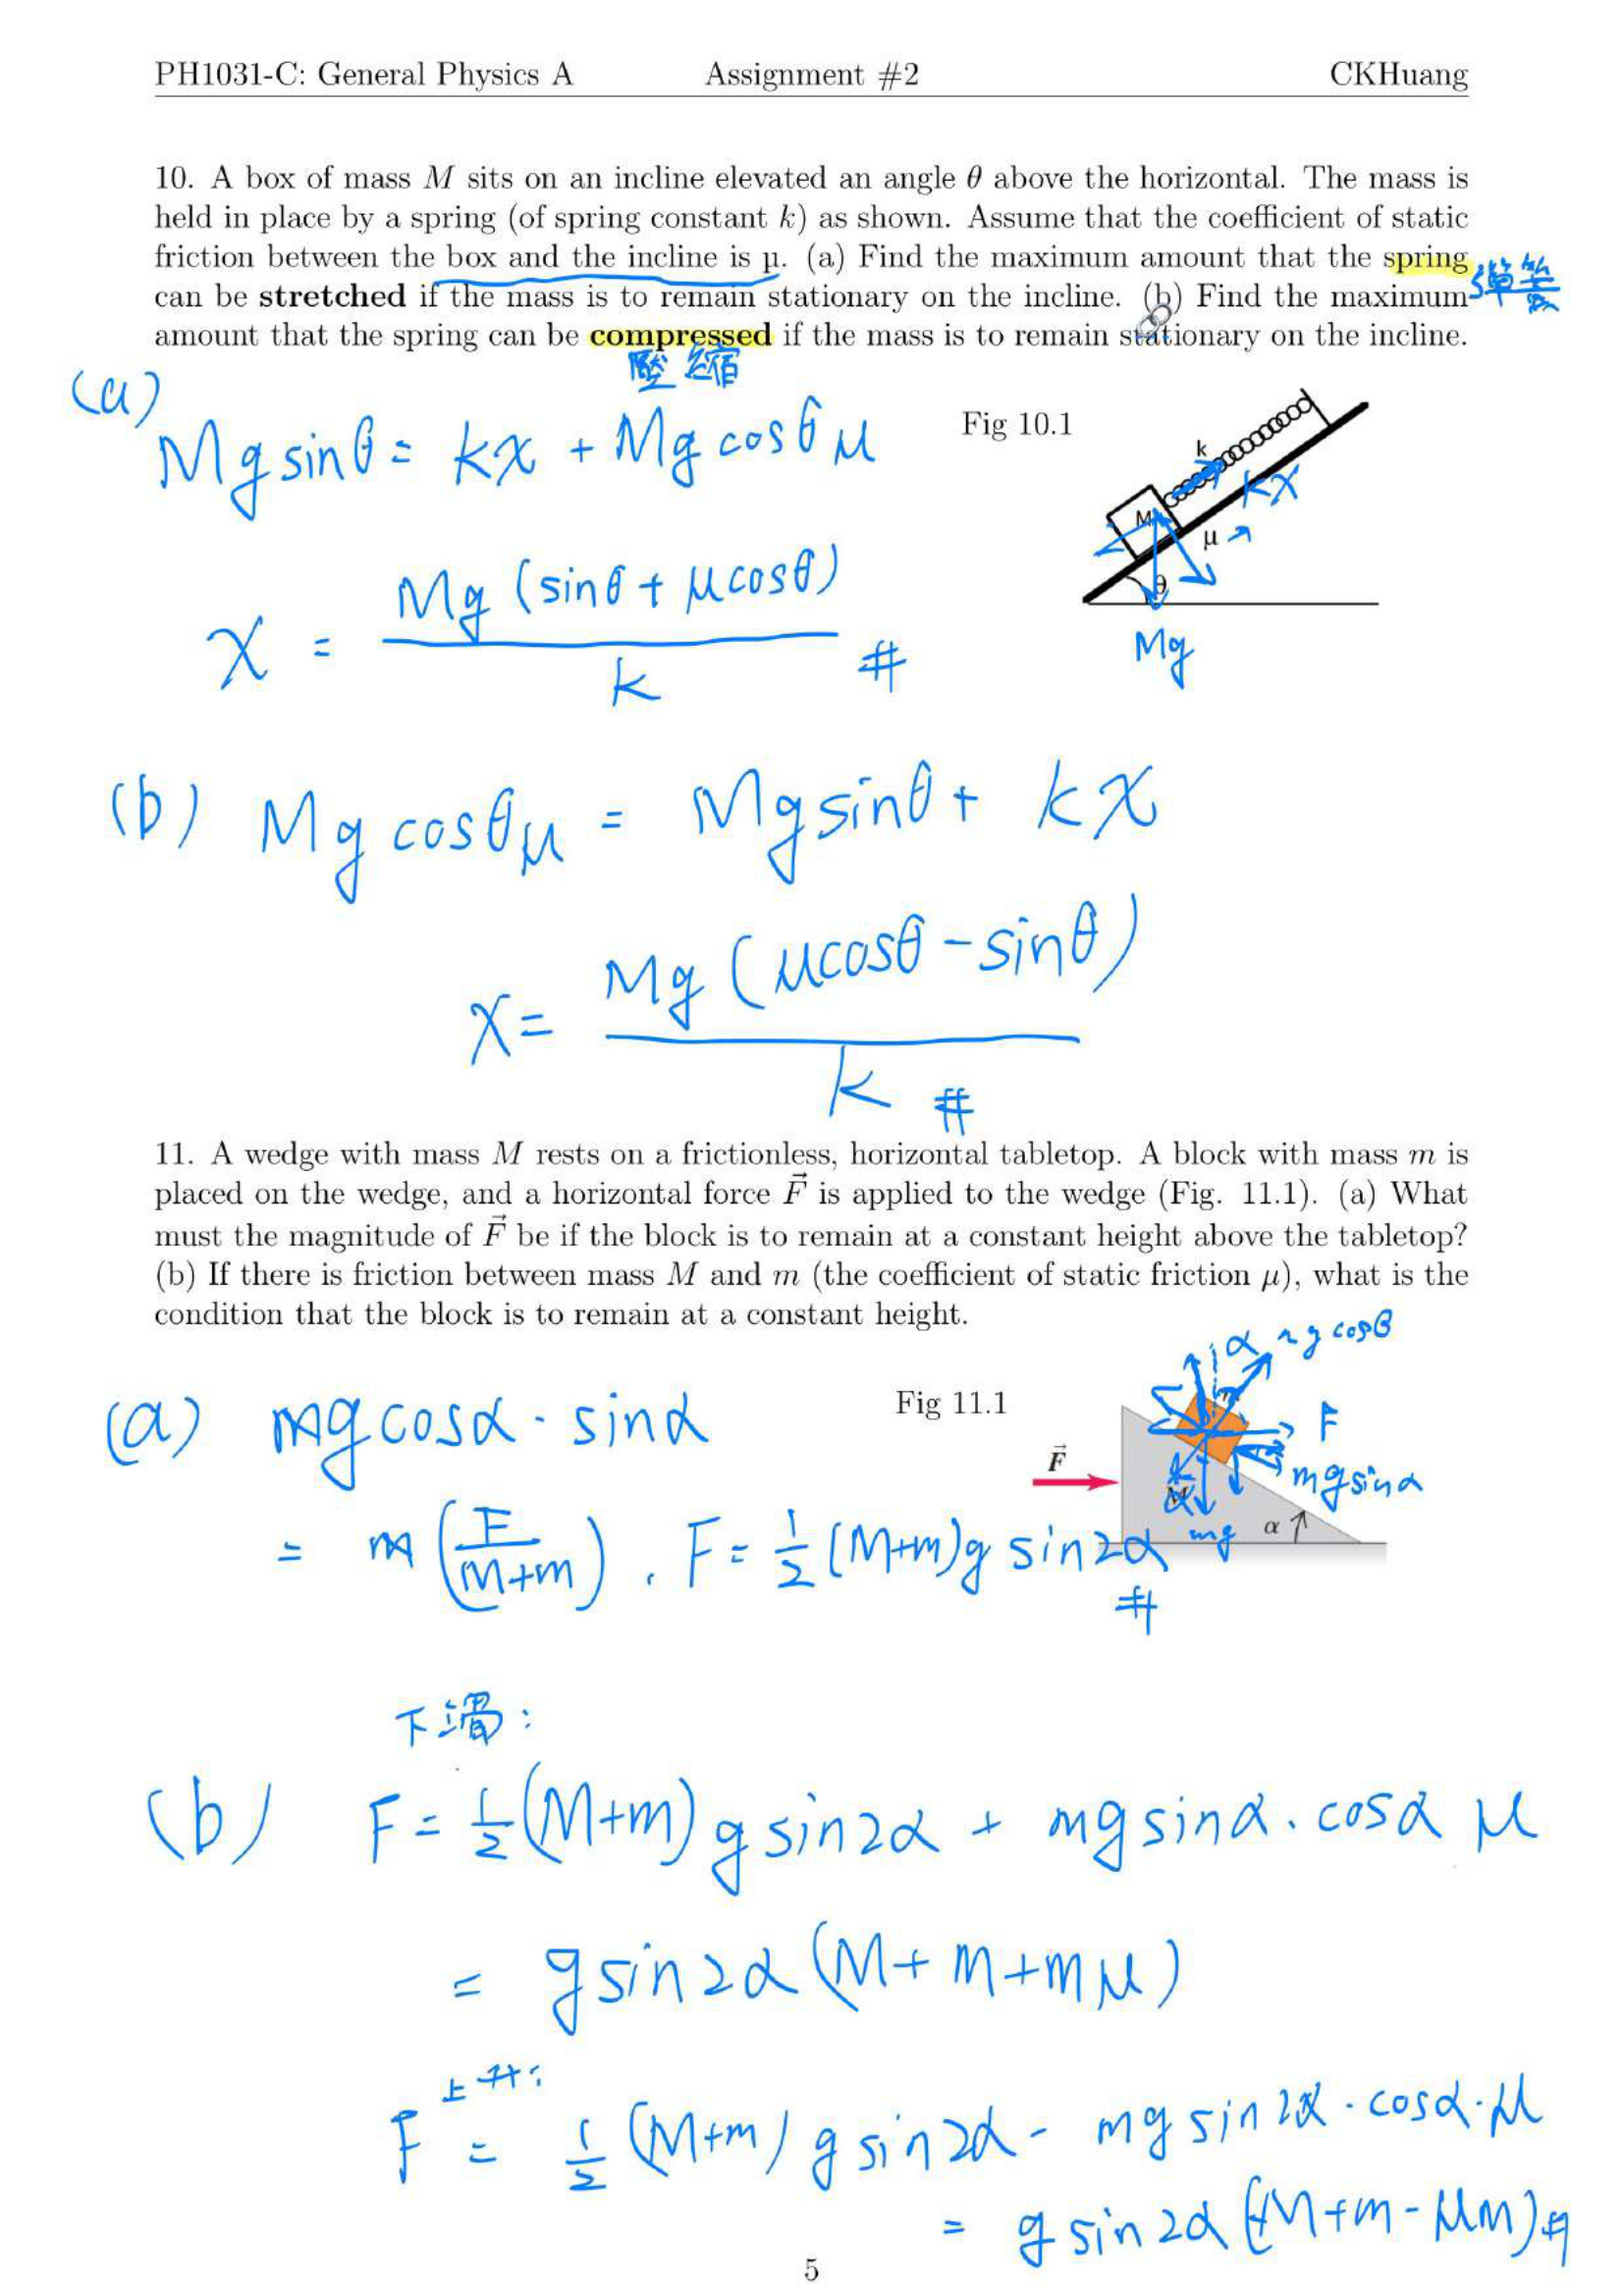 PH1031-C: General Physics A Assignment #2 CKHuang
10. A box of mass M sits on an incline elevated an angle θ above the horizontal. The mass is
held in place by a spring (of spring constant k) as shown. Assume that the coefficient of static
friction between the box and the incline is μ. (a) Find the maximum amount that the spring
彈簧
can be stretched if the mass is to remain stationary on the incline. (b) Find the maximum
amount that the spring can be compressed if the mass is to remain stationary on the incline.
壓縮
(a)
Mg sinθ = kx + Mg cosθ μ
Fig 10.1
k
kx
M
μ
θ
Mg
x = Mg (sinθ + μcosθ) / k #
(b) Mg cosθμ = Mg sinθ + kx
x = Mg (μcosθ - sinθ) / k #
11. A wedge with mass M rests on a frictionless, horizontal tabletop. A block with mass m is
placed on the wedge, and a horizontal force F⃗ is applied to the wedge (Fig. 11.1). (a) What
must the magnitude of F⃗ be if the block is to remain at a constant height above the tabletop?
(b) If there is friction between mass M and m (the coefficient of static friction μ), what is the
condition that the block is to remain at a constant height.
α mg cosθ
(a) mg cosα · sinα
Fig 11.1
F
F⃗
mg sinα
α
mg
= m (F / M+m) . F = 1/2 (M+m)g sin2α #
下滑:
(b) F = 1/2 (M+m) g sin2α + mg sinα . cosα μ
= g sin2α (M + m + mμ)
上升:
F = 1/2 (M+m) g sin2α - mg sin2α · cosα · μ
= g sin2α (M + m - μm) #
5